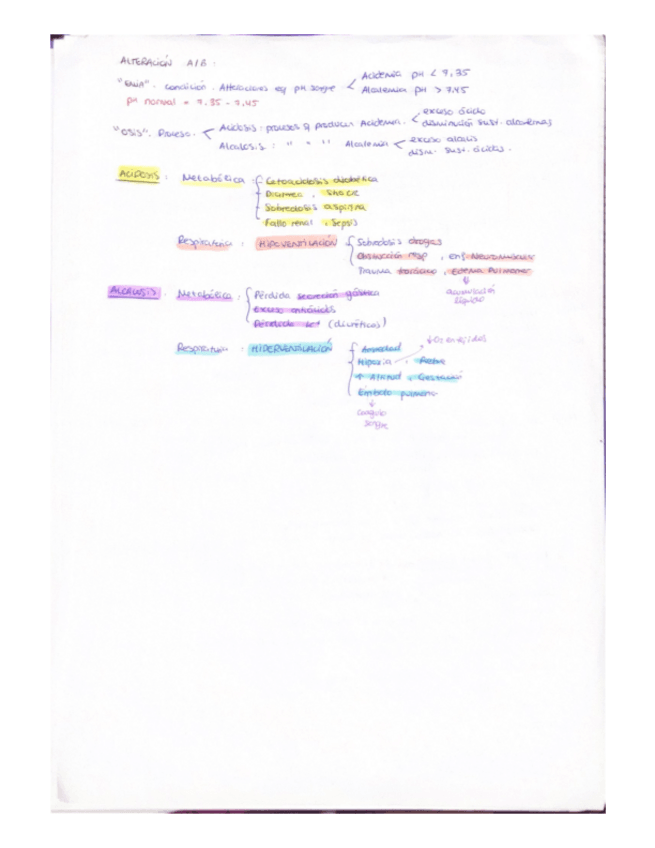 ALTERACIÓN A/B.
"EMIA". condición. Alteraciones eq pH sangre < Acidemia pH < 7,35
Alcalemia pH > 7.45
pH normal = 7,35 - 7,45
"OSIS". Proceso. < Acidosis: procesos q producen Acidemia. < exceso ácido
disminución sust. alcalinas
Alcalosis: " " " Alcalemia < exceso alcalis
dism. sust. ácidas.
ACIDOSIS: Metabólica: Cetoacidosis diabética
Diarrea, Shock
Sobredosis aspirina
Fallo renal, Sepsis
Respiratoria: HIPOVENTILACIÓN Sobredosis drogas
Obstrucción resp, enf Neuromuscular
Trauma torácico, Edema Pulmonar
↓
acumulación líquido
ALCALOSIS: Metabólica: Pérdida secreción gástrica
exceso antiácidos
Pérdida (diuréticos)
Respiratoria: HIPERVENTILACIÓN Ansiedad
Hipoxia, Fiebre
↓O2 en tejidos
↑ Altitud, Gestación
Émbolo pulmonar
↓
Coágulo sangre